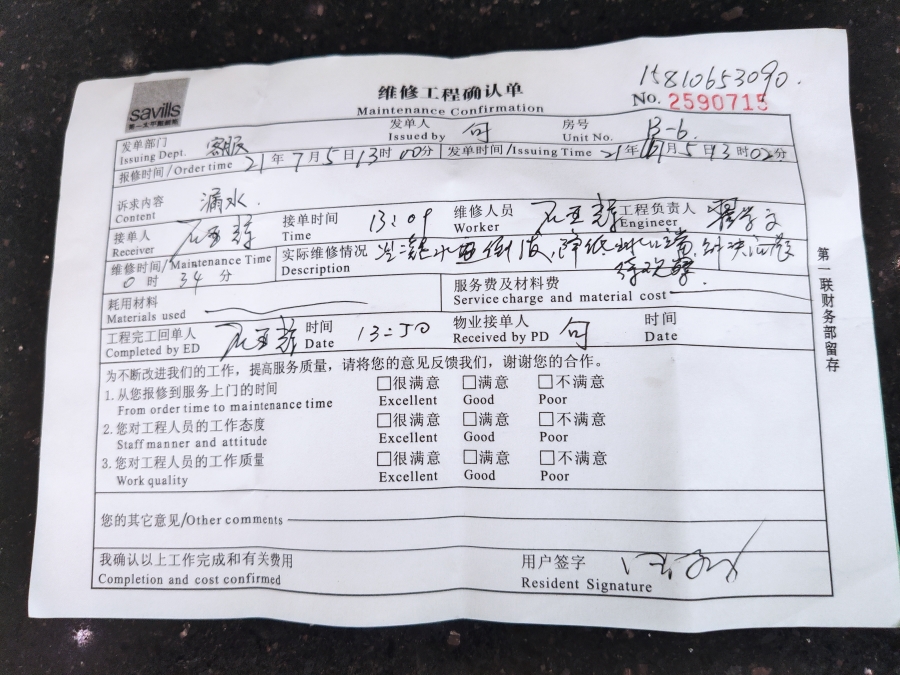 savills
第一太平戴维斯
维修工程确认单
Maintenance Confirmation
15810653090.
No. 2590715
发单部门 客服 发单人 句 房号 B-6.
Issuing Dept. Issued by Unit No.
报修时间/Order time 21年7月5日13时00分 发单时间/Issuing Time 21年7月5日13时02分
诉求内容 漏水.
Content
接单人 接单时间 13:09 维修人员 工程负责人
Receiver Time Worker Engineer
维修时间/Maintenance Time 实际维修情况
0时34分 Description
耗用材料 服务费及材料费
Materials used Service charge and material cost
工程完工回单人 时间 13:50 物业接单人 句 时间
Completed by ED Date Received by PD Date
为不断改进我们的工作，提高服务质量，请将您的意见反馈我们，谢谢您的合作。
1.从您报修到服务上门的时间 □很满意 □满意 □不满意
From order time to maintenance time Excellent Good Poor
2.您对工程人员的工作态度 □很满意 □满意 □不满意
Staff manner and attitude Excellent Good Poor
3.您对工程人员的工作质量 □很满意 □满意 □不满意
Work quality Excellent Good Poor
您的其它意见/Other comments
我确认以上工作完成和有关费用 用户签字
Completion and cost confirmed Resident Signature
第一联财务部留存